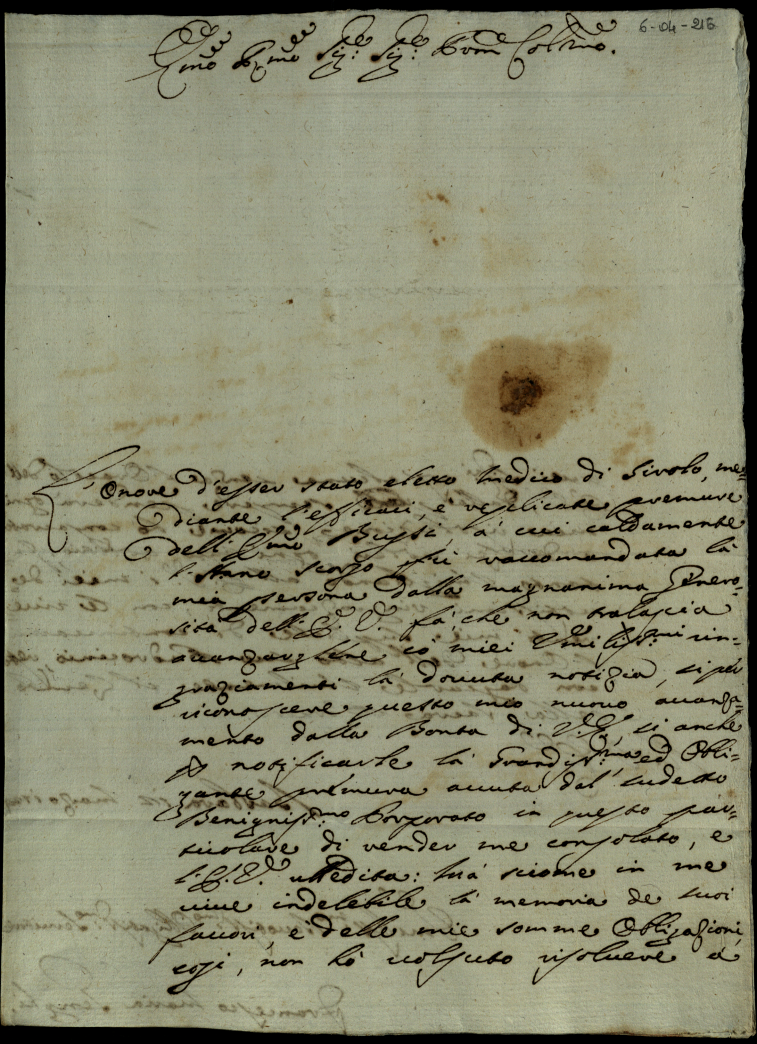 6-04-216
Em.mo R.mo Sig.re Sig.re Pron Col.mo.
L'onore d'esser stato eletto Medico di Sirolo, me=
diante l'efficaci, e replicate premure
dell' Em.mo Bussi, à cui caldamente
l'Anno scorso fù raccomandata la
mia persona dalla magnanima Genero=
sità dell' E. V. fà che non tralascia
avanzargliene co' miei Umiliss.mi rin=
graziamenti la dovuta notizia, si per
riconoscere questo mio nuovo avanza=
mento dalla Bontà di V. E., si anche
p notificarle la Grandiss.ma ed Obli=
gante premura avuta dal sudetto
Benigniss.mo Porporato in questo par=
ticolare di render me consolato, e
l' E. V. ubbedita: Mà siccome in me
vive indelebile la memoria de suoi
favori, e delle mie somme Obligazioni,
così, non hò volsuto risolvere à